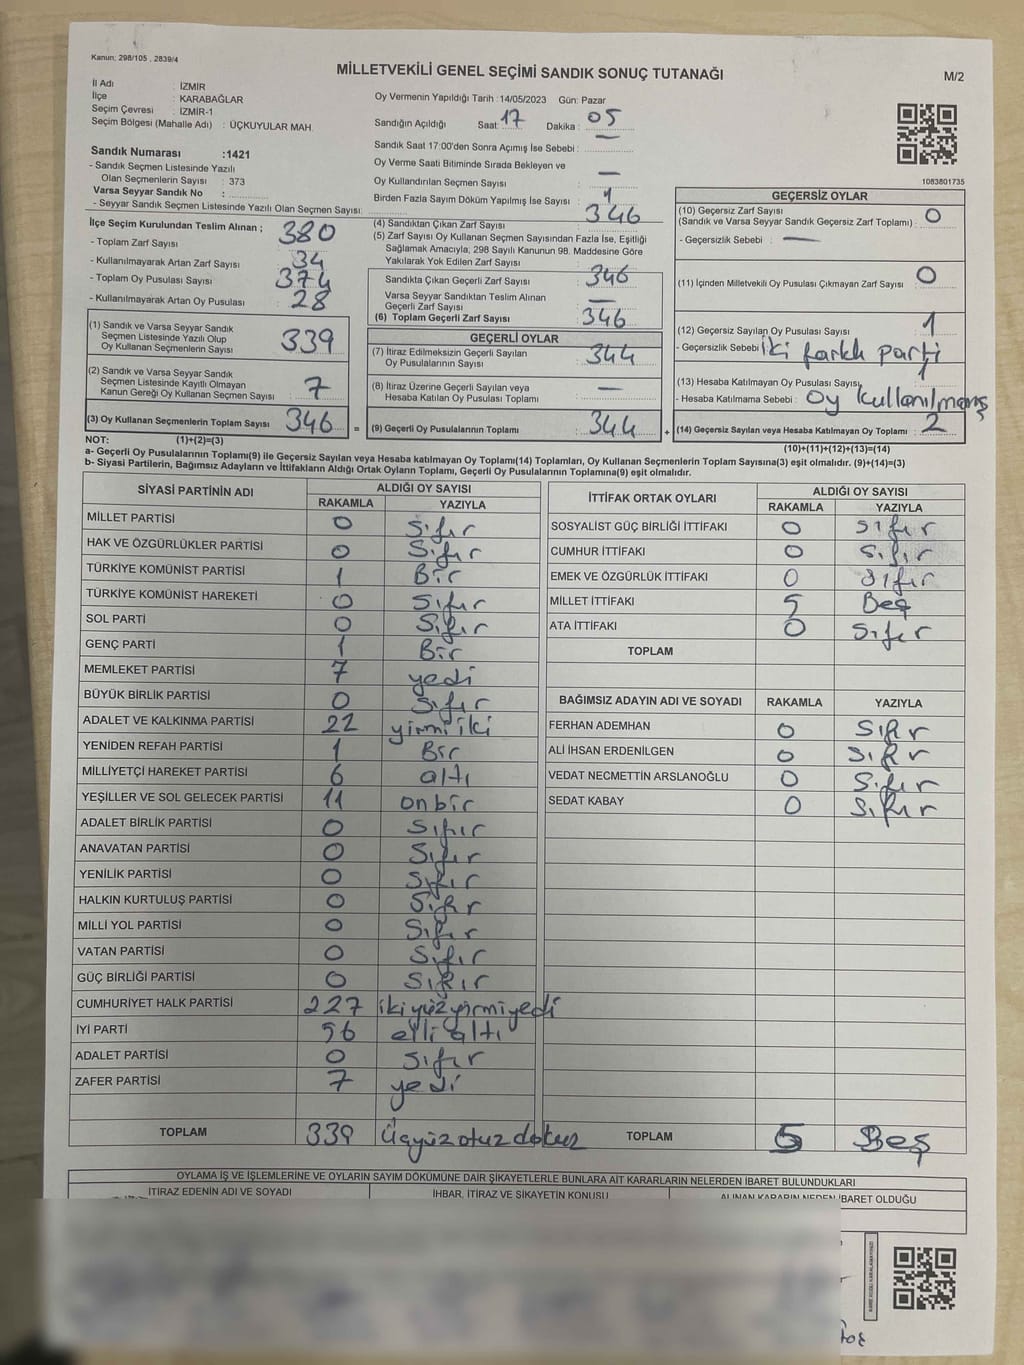 Kanun; 298/105 , 2839/4
MİLLETVEKİLİ GENEL SEÇİMİ SANDIK SONUÇ TUTANAĞI
M/2
İl Adı : İZMİR
İlçe : KARABAĞLAR
Seçim Çevresi : İZMİR-1
Seçim Bölgesi (Mahalle Adı) : ÜÇKUYULAR MAH.
Sandık Numarası :1421
- Sandık Seçmen Listesinde Yazılı
Olan Seçmenlerin Sayısı : 373
Varsa Seyyar Sandık No :
- Seyyar Sandık Seçmen Listesinde Yazılı Olan Seçmen Sayısı:
Oy Vermenin Yapıldığı Tarih :14/05/2023 Gün: Pazar
Sandığın Açıldığı Saat: 17 Dakika : 05
Sandık Saat 17:00'den Sonra Açımış İse Sebebi : —
Oy Verme Saati Bitiminde Sırada Bekleyen ve
Oy Kullandırılan Seçmen Sayısı —
Birden Fazla Sayım Döküm Yapılmış İse Sayısı : 1
1083801735
İlçe Seçim Kurulundan Teslim Alınan ;
- Toplam Zarf Sayısı 380
- Kullanılmayarak Artan Zarf Sayısı 34
- Toplam Oy Pusulası Sayısı 374
- Kullanılmayarak Artan Oy Pusulası 28
(1) Sandık ve Varsa Seyyar Sandık
Seçmen Listesinde Yazılı Olup
Oy Kullanan Seçmenlerin Sayısı 339
(2) Sandık ve Varsa Seyyar Sandık
Seçmen Listesinde Kayıtlı Olmayan
Kanun Gereği Oy Kullanan Seçmen Sayısı 7
(3) Oy Kullanan Seçmenlerin Toplam Sayısı 346 =
(4) Sandıktan Çıkan Zarf Sayısı 346
(5) Zarf Sayısı Oy Kullanan Seçmen Sayısından Fazla İse, Eşitliği
Sağlamak Amacıyla; 298 Sayılı Kanunun 98. Maddesine Göre
Yakılarak Yok Edilen Zarf Sayısı
Sandıkta Çıkan Geçerli Zarf Sayısı 346
Varsa Seyyar Sandıktan Teslim Alınan
Geçerli Zarf Sayısı —
(6) Toplam Geçerli Zarf Sayısı 346
GEÇERLİ OYLAR
(7) İtiraz Edilmeksizin Geçerli Sayılan
Oy Pusulalarının Sayısı 344
(8) İtiraz Üzerine Geçerli Sayılan veya
Hesaba Katılan Oy Pusulası Toplamı —
(9) Geçerli Oy Pusulalarının Toplamı 344 +
GEÇERSİZ OYLAR
(10) Geçersiz Zarf Sayısı
(Sandık ve Varsa Seyyar Sandık Geçersiz Zarf Toplamı) : 0
- Geçersizlik Sebebi : —
(11) İçinden Milletvekili Oy Pusulası Çıkmayan Zarf Sayısı 0
(12) Geçersiz Sayılan Oy Pusulası Sayısı 1
- Geçersizlik Sebebi iki farklı parti
(13) Hesaba Katılmayan Oy Pusulası Sayısı 1
- Hesaba Katılmama Sebebi : oy kullanılmamış
(14) Geçersiz Sayılan veya Hesaba Katılmayan Oy Toplamı 2
NOT: (1)+(2)=(3)
(10)+(11)+(12)+(13)=(14)
a- Geçerli Oy Pusulalarının Toplamı(9) ile Geçersiz Sayılan veya Hesaba katılmayan Oy Toplamı(14) Toplamları, Oy Kullanan Seçmenlerin Toplam Sayısına(3) eşit olmalıdır. (9)+(14)=(3)
b- Siyasi Partilerin, Bağımsız Adayların ve İttifakların Aldığı Ortak Oyların Toplamı, Geçerli Oy Pusulalarının Toplamına(9) eşit olmalıdır.
SİYASİ PARTİNİN ADI
ALDIĞI OY SAYISI
RAKAMLA YAZIYLA
MİLLET PARTİSİ 0 Sıfır
HAK VE ÖZGÜRLÜKLER PARTİSİ 0 Sıfır
TÜRKİYE KOMÜNİST PARTİSİ 1 Bir
TÜRKİYE KOMÜNİST HAREKETİ 0 Sıfır
SOL PARTİ 0 Sıfır
GENÇ PARTİ 1 Bir
MEMLEKET PARTİSİ 7 yedi
BÜYÜK BİRLİK PARTİSİ 0 Sıfır
ADALET VE KALKINMA PARTİSİ 22 yirmi iki
YENİDEN REFAH PARTİSİ 1 Bir
MİLLİYETÇİ HAREKET PARTİSİ 6 altı
YEŞİLLER VE SOL GELECEK PARTİSİ 11 onbir
ADALET BİRLİK PARTİSİ 0 Sıfır
ANAVATAN PARTİSİ 0 Sıfır
YENİLİK PARTİSİ 0 Sıfır
HALKIN KURTULUŞ PARTİSİ 0 Sıfır
MİLLİ YOL PARTİSİ 0 Sıfır
VATAN PARTİSİ 0 Sıfır
GÜÇ BİRLİĞİ PARTİSİ 0 Sıfır
CUMHURİYET HALK PARTİSİ 227 ikiyüzyirmiyedi
İYİ PARTİ 56 elli altı
ADALET PARTİSİ 0 Sıfır
ZAFER PARTİSİ 7 yedi
TOPLAM 339 üçyüzotuzdokuz
İTTİFAK ORTAK OYLARI
ALDIĞI OY SAYISI
RAKAMLA YAZIYLA
SOSYALİST GÜÇ BİRLİĞİ İTTİFAKI 0 Sıfır
CUMHUR İTTİFAKI 0 Sıfır
EMEK VE ÖZGÜRLÜK İTTİFAKI 0 Sıfır
MİLLET İTTİFAKI 5 Beş
ATA İTTİFAKI 0 Sıfır
TOPLAM
BAĞIMSIZ ADAYIN ADI VE SOYADI RAKAMLA YAZIYLA
FERHAN ADEMHAN 0 Sıfır
ALİ İHSAN ERDENİLGEN 0 Sıfır
VEDAT NECMETTİN ARSLANOĞLU 0 Sıfır
SEDAT KABAY 0 Sıfır
TOPLAM 5 Beş
OYLAMA İŞ VE İŞLEMLERİNE VE OYLARIN SAYIM DÖKÜMÜNE DAİR ŞİKAYETLERLE BUNLARA AİT KARARLARIN NELERDEN İBARET BULUNDUKLARI
İTİRAZ EDENİN ADI VE SOYADI
İHBAR, İTİRAZ VE ŞİKAYETİN KONUSU
ALINAN KARARIN NEDEN İBARET OLDUĞU